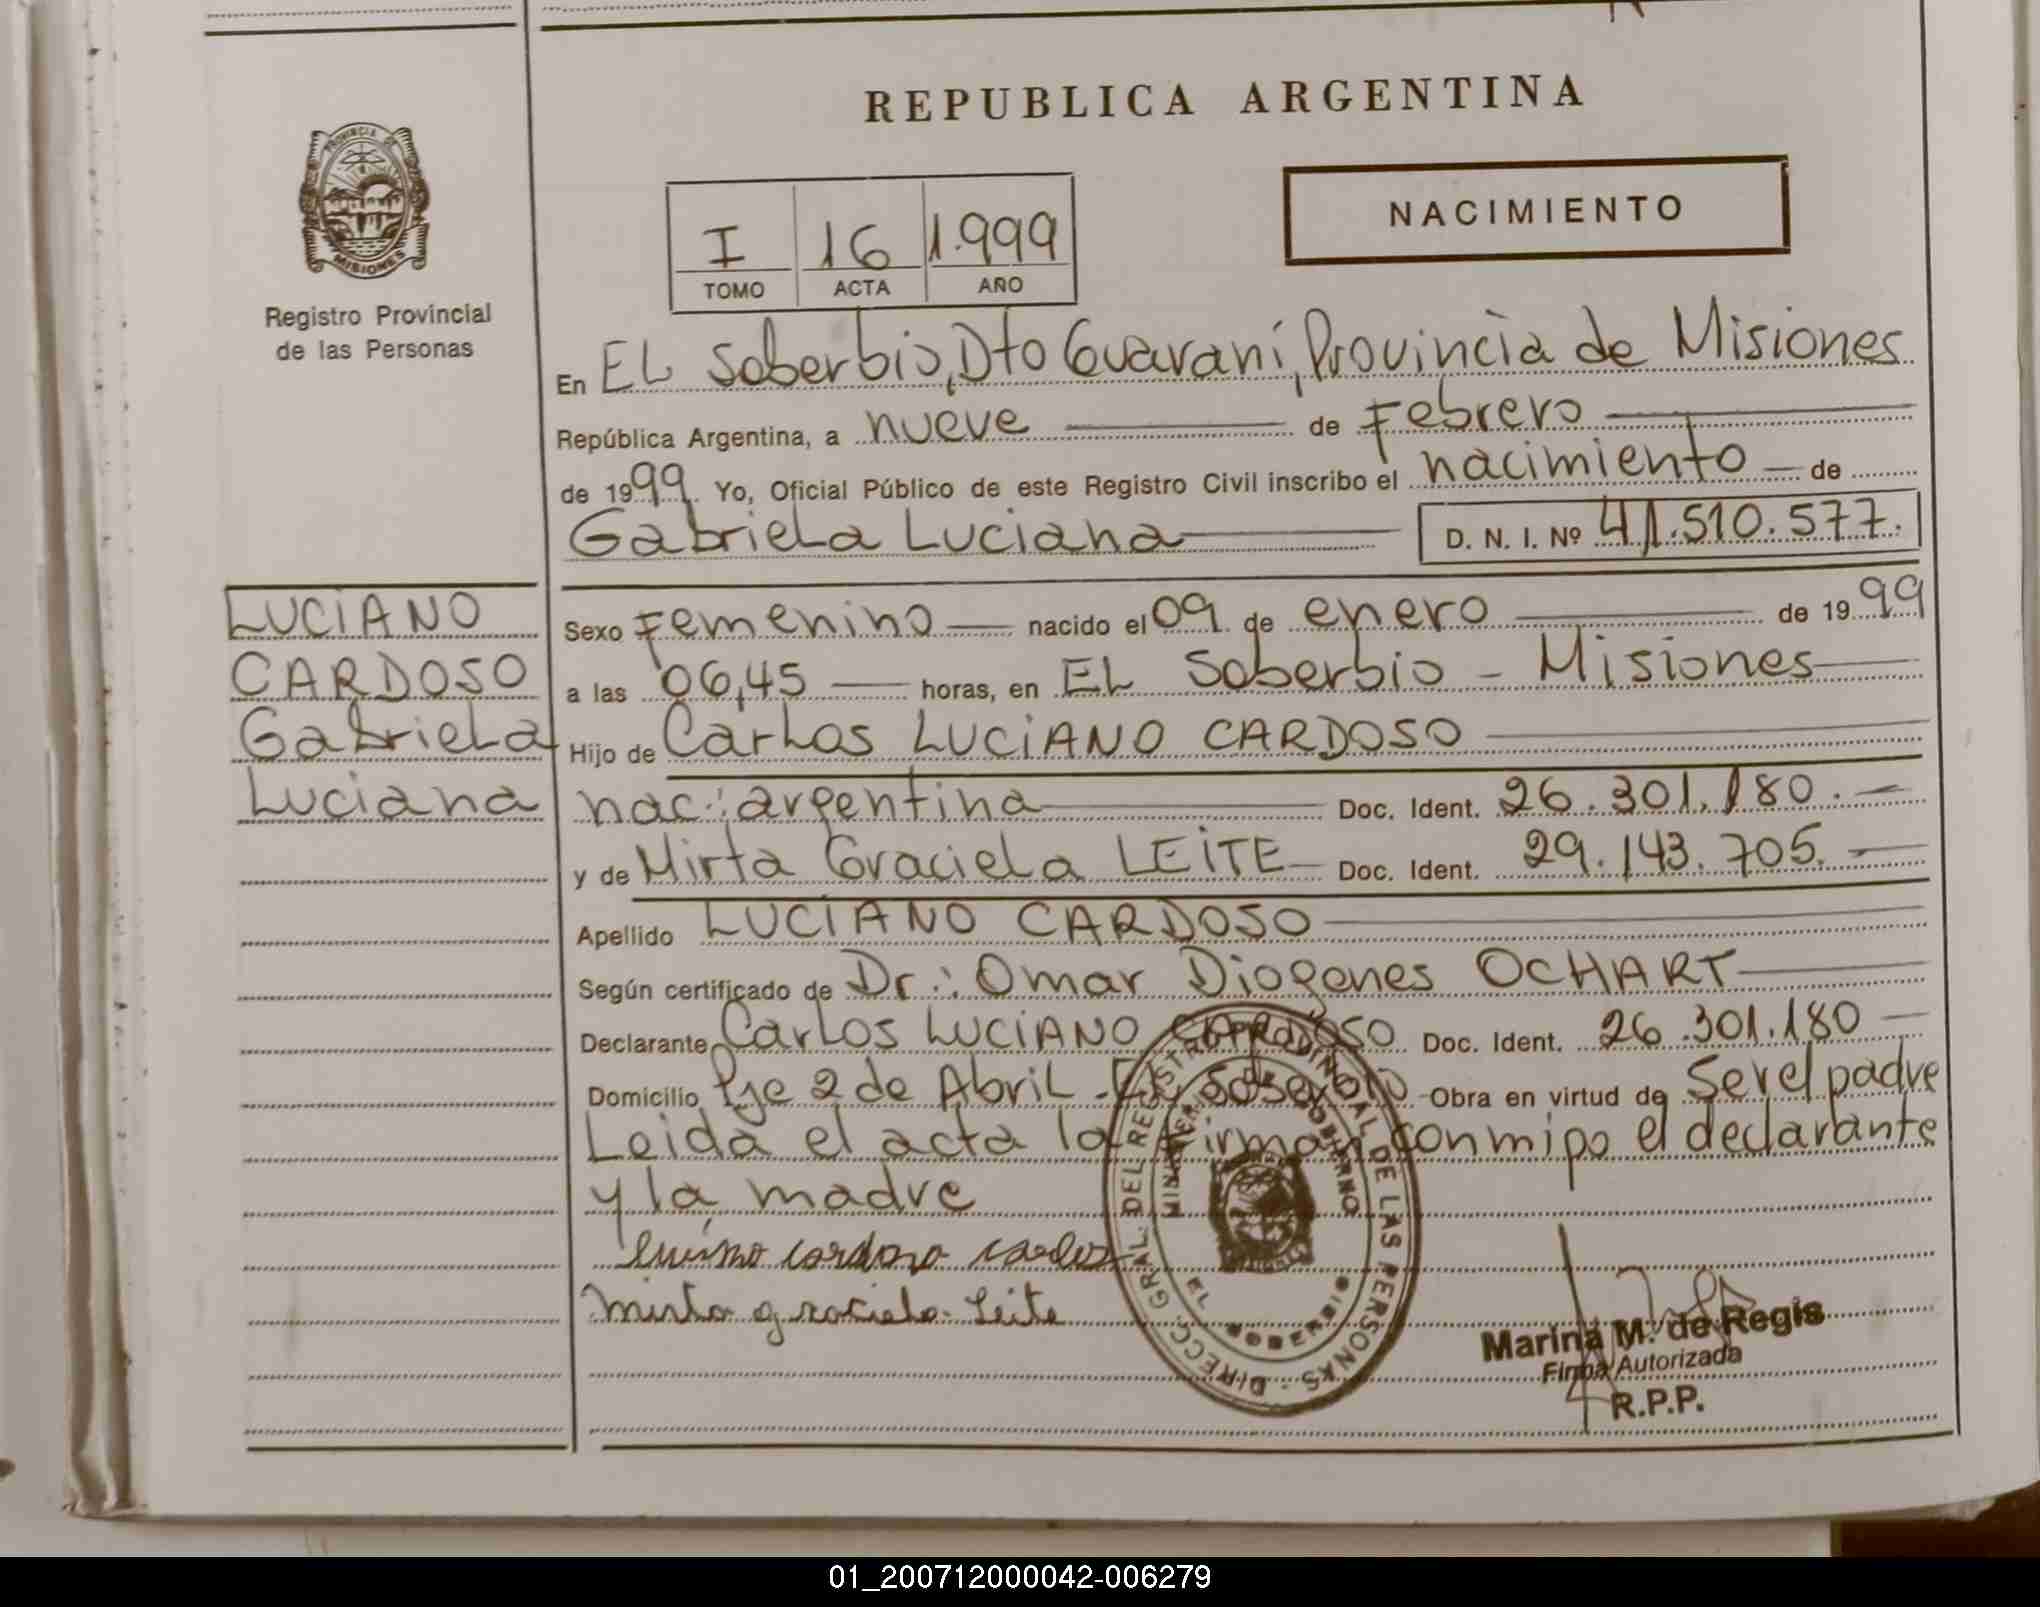 REPUBLICA ARGENTINA
PROVINCIA DE
MISIONES
Registro Provincial
de las Personas
I 16 1.999
TOMO ACTA AÑO
NACIMIENTO
En EL Soberbio, Dto Guaraní, Provincia de Misiones
República Argentina, a nueve de Febrero
de 1999 Yo, Oficial Público de este Registro Civil inscribo el nacimiento de
Gabriela Luciana D. N. I. Nº 41.510.577.
LUCIANO
CARDOSO
Gabriela
Luciana
Sexo Femenino nacido el 09 de enero de 1999
a las 06,45 horas, en EL Soberbio - Misiones
Hijo de Carlos LUCIANO CARDOSO
nac: argentina Doc. Ident. 26.301.180.-
y de Mirta Graciela LEITE Doc. Ident. 29.143.705.-
Apellido LUCIANO CARDOSO
Según certificado de Dr.: Omar Diogenes OCHART
Declarante Carlos LUCIANO CARDOSO Doc. Ident. 26.301.180
Domicilio Pje 2 de Abril - EL Soberbio Obra en virtud de Ser el padre
Leida el acta la firman conmigo el declarante
y la madre
Luciano cardozo carlos
mirta graciela leite
DIRECC. GRAL. DEL REGISTRO PROVINCIAL DE LAS PERSONAS
MINISTERIO DE GOBIERNO
EL SOBERBIO
Marina M. de Regis
Firma Autorizada
R.P.P.
01_200712000042-006279